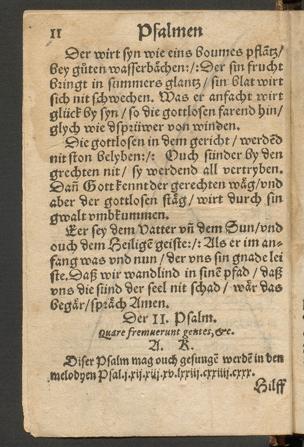 II Psalmen
Der wirt syn wie eins boumes pflātz/
bey gůten wasserbächen:/: Der sin frucht
bringt in summers glantz/ sin blat wirt
sich nit schwechen. Was er anfacht wirt
glück by syn/ so die gottlosen farend hin/
glych wie dspriüwer von winden.
Die gottlosen in dem gericht/ werdēd
nit ston belyben:/: Ouch sünder by den
grechten nit/ sy werdend all vertryben.
Dañ Gott kennt der gerechten wäg/ vnd
aber der gottlosen stäg/ wirt durch sin
gwalt vmbkummen.
Eer sey dem Vatter vñ dem Sun/ vnd
ouch dem Heiligē geiste:/: Als er im an-
fang was vnd nun/ der vns sin gnade lei
ste. Daß wir wandlind in sinē pfad/ daß
vns die sünd der seel nit schad/ wär das
begär/ spräch Amen.
Der II. Psalm.
Quare fremuerunt gentes, &c.
A. K.
Diser Psalm mag ouch gesungē werdē in den
melodyen Psal.j.xij.xiij.xv.lxxiij.cxxiiij.cxxx.
Hilff